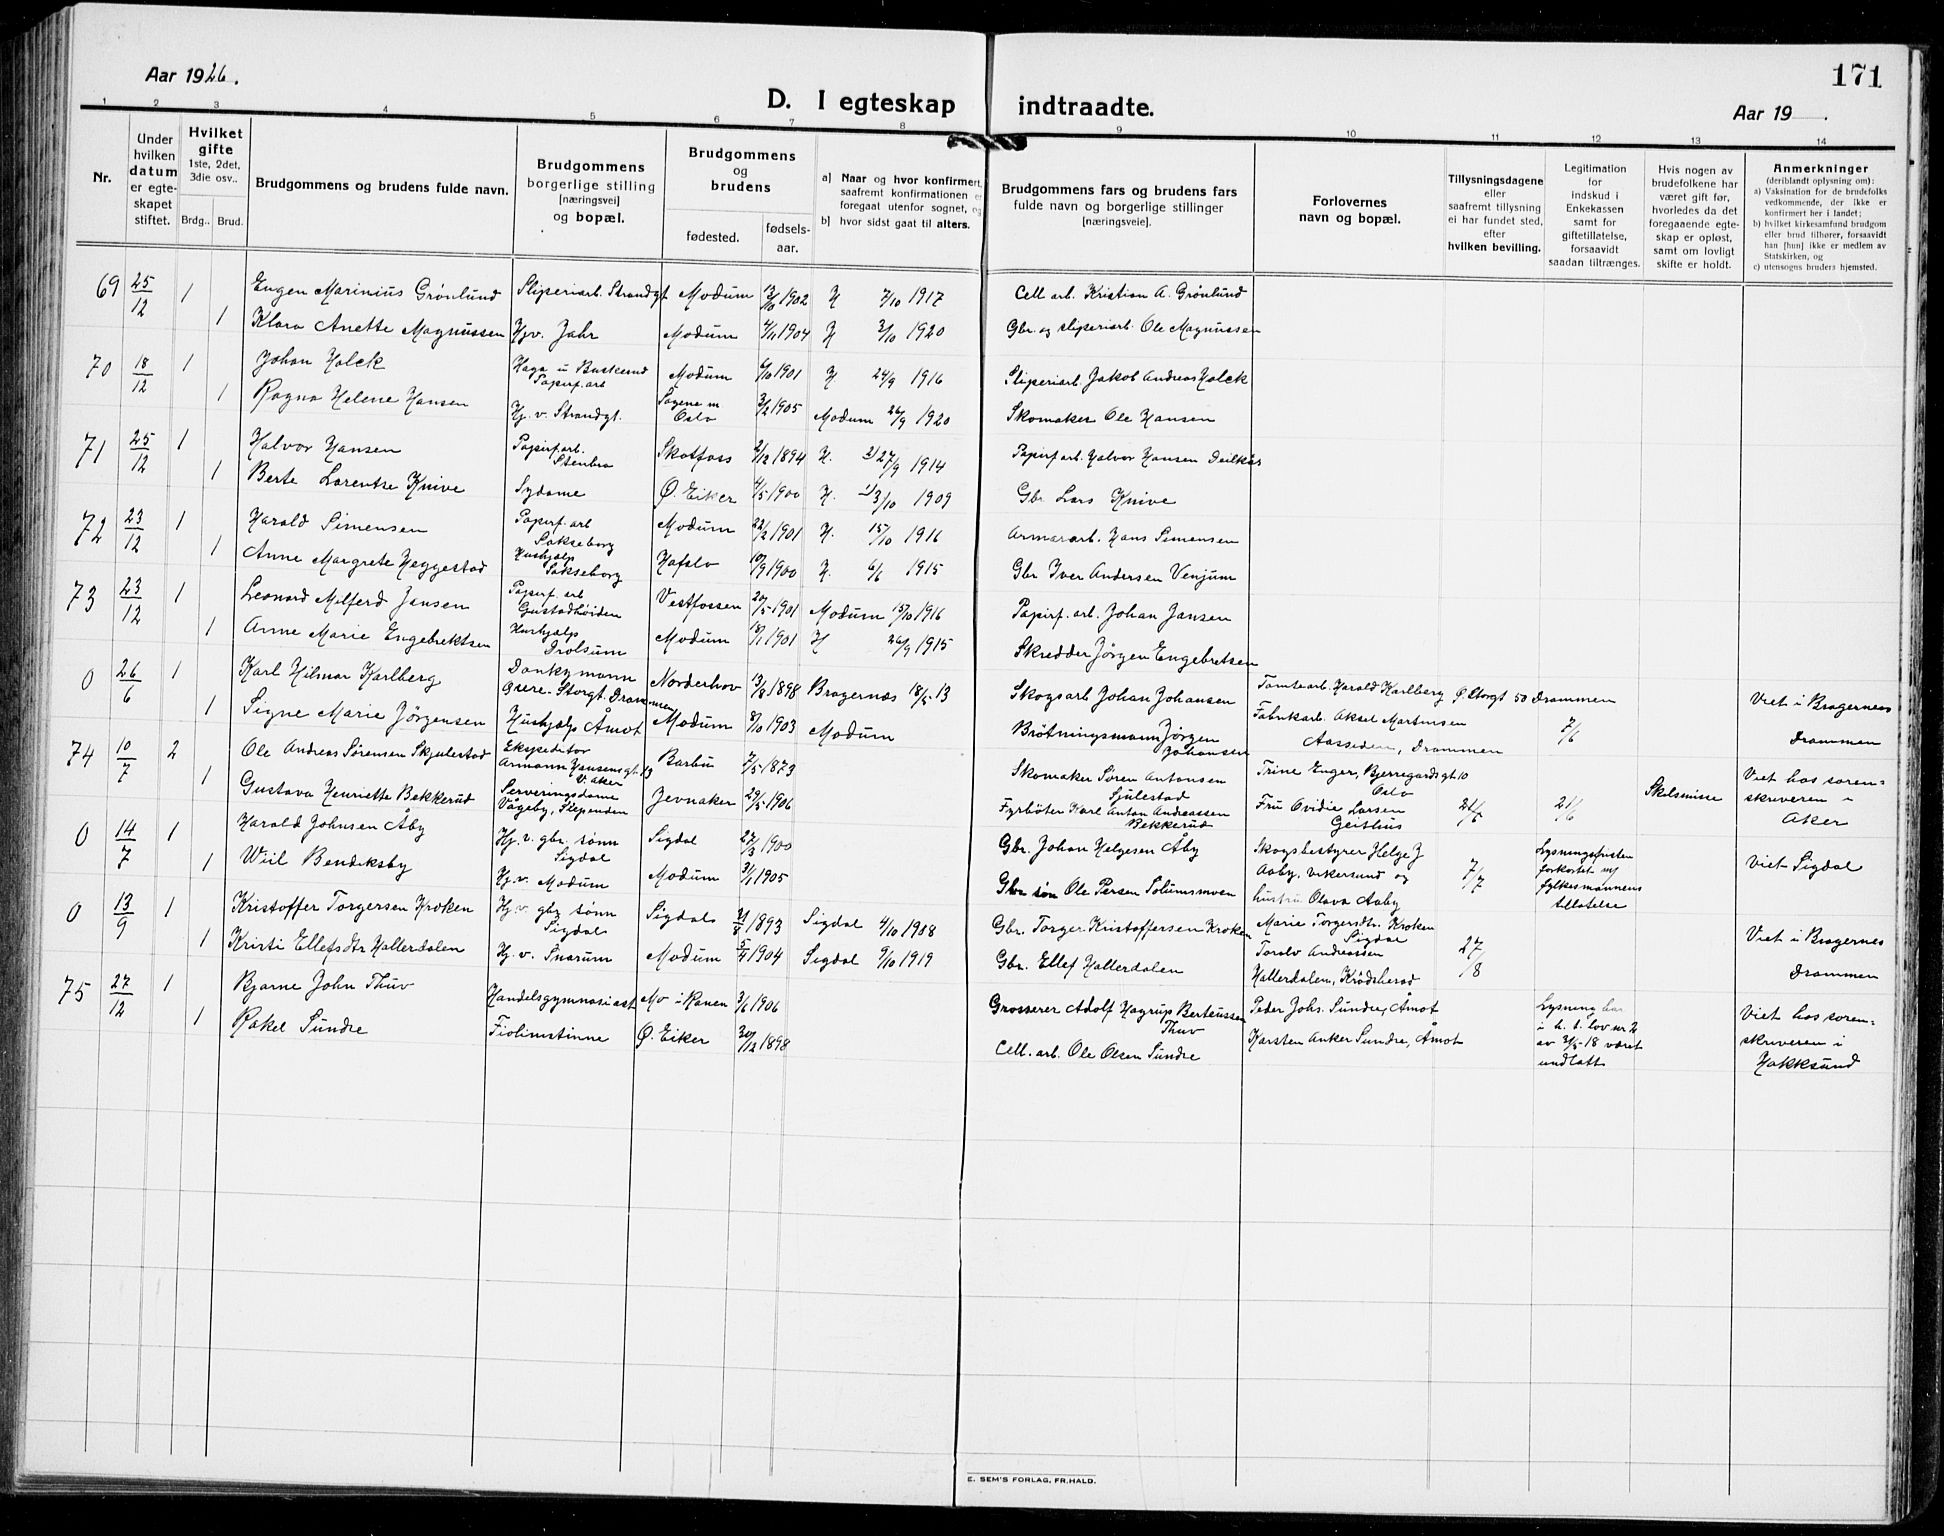 Aar 1926.
171
D. I egteskap indtraadte.
Aar 19 .
1 2 3 4 5 6 7 8 9 10 11 12 13 14
Nr.
Under hvilken datum er egte-skapet stiftet.
Hvilket gifte
1ste, 2det, 3die osv..
Brdg.. Brud.
Brudgommens og brudens fulde navn.
Brudgommens borgerlige stilling [næringsvei] og bopæl.
Brudgommens og brudens
fødested.
fødsels-aar.
a) Naar og hvor konfirmert, saafremt konfirmationen er foregaat utenfor sognet, og
b) hvor sidst gaat til alters.
Brudgommens fars og brudens fars fulde navn og borgerlige stillinger [næringsveie].
Forlovernes navn og bopæl.
Tillysningsdagene eller saafremt tillysning ei har fundet sted, efter hvilken bevilling.
Legitimation for indskud i Enkekassen samt for giftetillatelse, forsaavidt saadan tiltrænges.
Hvis nogen av brudefolkene har været gift før, hvorledes da det foregaaende egte-skap er opløst, samt om lovligt skifte er holdt.
Anmerkninger
(deriblandt oplysning om):
a) Vaksination for de brudefolks vedkommende, der ikke er konfirmert her i landet;
b) hvilket kirkesamfund brudgom eller brud tilhører, forsaavidt han [hun] ikke er medlem av Statskirken, og
c) utensogns bruders hjemsted.
69 25/12 1 Eugen Marinius Grønlund Sliperiarb. Strandgt Modum 13/10 1902 H 7/10 1917 Cell arb. Kristian A. Grønlund
1 Klara Anette Magnussen Hjv. Jahr Modum 4/11 1904 H 3/10 1920 Gbr. og sliperiarb. Ole Magnussen
70 18/12 1 Johan Holck Haga u Buskerud Papirf.arb Modum 6/10 1901 H 24/9 1916 Sliperiarb. Jakob Andreas Holck
1 Ragna Helene Hansen Hj. v. Strandgt. Sagene m Oslo 3/2 1905 Modum 26/9 1920 Skomaker Ole Hansen
71 25/12 1 Halvor Hansen Papirf.arb. Stenbro Skotfoss 2/12 1894 H. 27/9 1914 Papirf arb. Halvor Hansen Deilkås
1 Berte Lorentse Knive Sydame Ø. Eiker 4/5 1900 H. 3/10 1909 Gbr. Lars Knive
72 23/12 1 Harald Simensen Papirf. arb Sakseborg Modum 22/2 1901 H. 15/10 1916 Armararb. Hans Simensen
1 Anne Margrete Heggestad Hushjælp Sakseborg Hafslo 10/9 1900 H. 6/6 1915 Gbr Iver Andersen Venjum
73 23/12 1 Leonard Milferd Jansen Papirf. arb Gustadhøiden Vestfossen 20/5 1901 Modum 15/10 1916 Papirf. arb. Johan Jansen
1 Anne Marie Engebrektsen Hushjælp Drolsum Modum 18/1 1901 H 26/9 1915 Skredder Jørgen Engebretsen
0 26/6 1 Karl Hilmar Karlberg Donkymann Øvre-Storgt. Drammen Norderhov 13/8 1898 Bragernæs 18/5-13 Skogsarb Johan Johansen Tomtearb. Harald Karlberg Ø. Storgt 50 Drammen Viet i Bragernes
1 Signe Marie Jørgensen Hushjælp Åmot Modum 8/10 1903 Modum Brøtningsmann Jørgen Johansen Fabrikarb. Aksel Martinsen Aasseden, Drammen 7/6 Drammen
74 10/7 2 Ole Andreas Sørensen Skjulestad Ekspeditør Armann Hansensgt. 13 V. Aker Barbu 7/5 1873 Skomaker Søren Antonsen Sjulestad Trine Enger, Bjerregårdsgt 10 Oslo Skilsmisse Viet hos soren-
1 Gustava Henriette Bekkerud Serveringsdame Vågeby, Slependen Jevnaker 29/5 1906 Fyrbøter Karl Anton Andreassen Bekkerud Fru Ovidie Larsen Geithus 21/6 21/6 skriveren i Aker
0 14/7 1 Harald Johnsen Åby Hj. v. gbr. sønn Sigdal Sigdal 27/3 1900 Gbr. Johan Helgesen Åby Skogsbestyrer Helge J Aaby, Vikersund og 7/7 Lysningsfristen forkortet m/ Viet Sigdal
1 Wiil Bendiksby Hj.v. Modum Modum 31/1 1905 Gbr søn Ole Persen Solumsmoen hustru Olava Aaby fylkesmannens tillatelse
0 13/9 1 Kristoffer Torgersen Kroken Hj. v. gbr sønn Sigdal Sigdal 21/8 1893 Sigdal 4/10 1908 Gbr. Torger Kristoffersen Kroken Marie Torgersdtr. Kroken Sigdal Viet i Bragernes
1 Kristi Ellefsdtr Hallerdalen Hj. v. Snarum Modum 5/9 1904 Sigdal 9/10 1919 Gbr. Ellef Hallerdalen Torolv Andreassen Hallerdalen, Krødsherad 27/8 Drammen
75 27/12 1 Bjarne John Thuv Handelsgymnasiast Mo i Ranen 3/6 1906 Grosserer Adolf Hagrup Berteussen Thuv Peder Johs. Sundre, Åmot Lysning har i h. t. lov nr 2 Viet hos soren-
1 Rakel Sundre Fiolinistinne Ø. Eiker 30/12 1898 Cell. arb. Ole Olsen Sundre Karsten Anker Sundre, Åmot av 31/5-18 været undlatt skriveren i Hokksund
E. SEM'S FORLAG, FR.HALD.